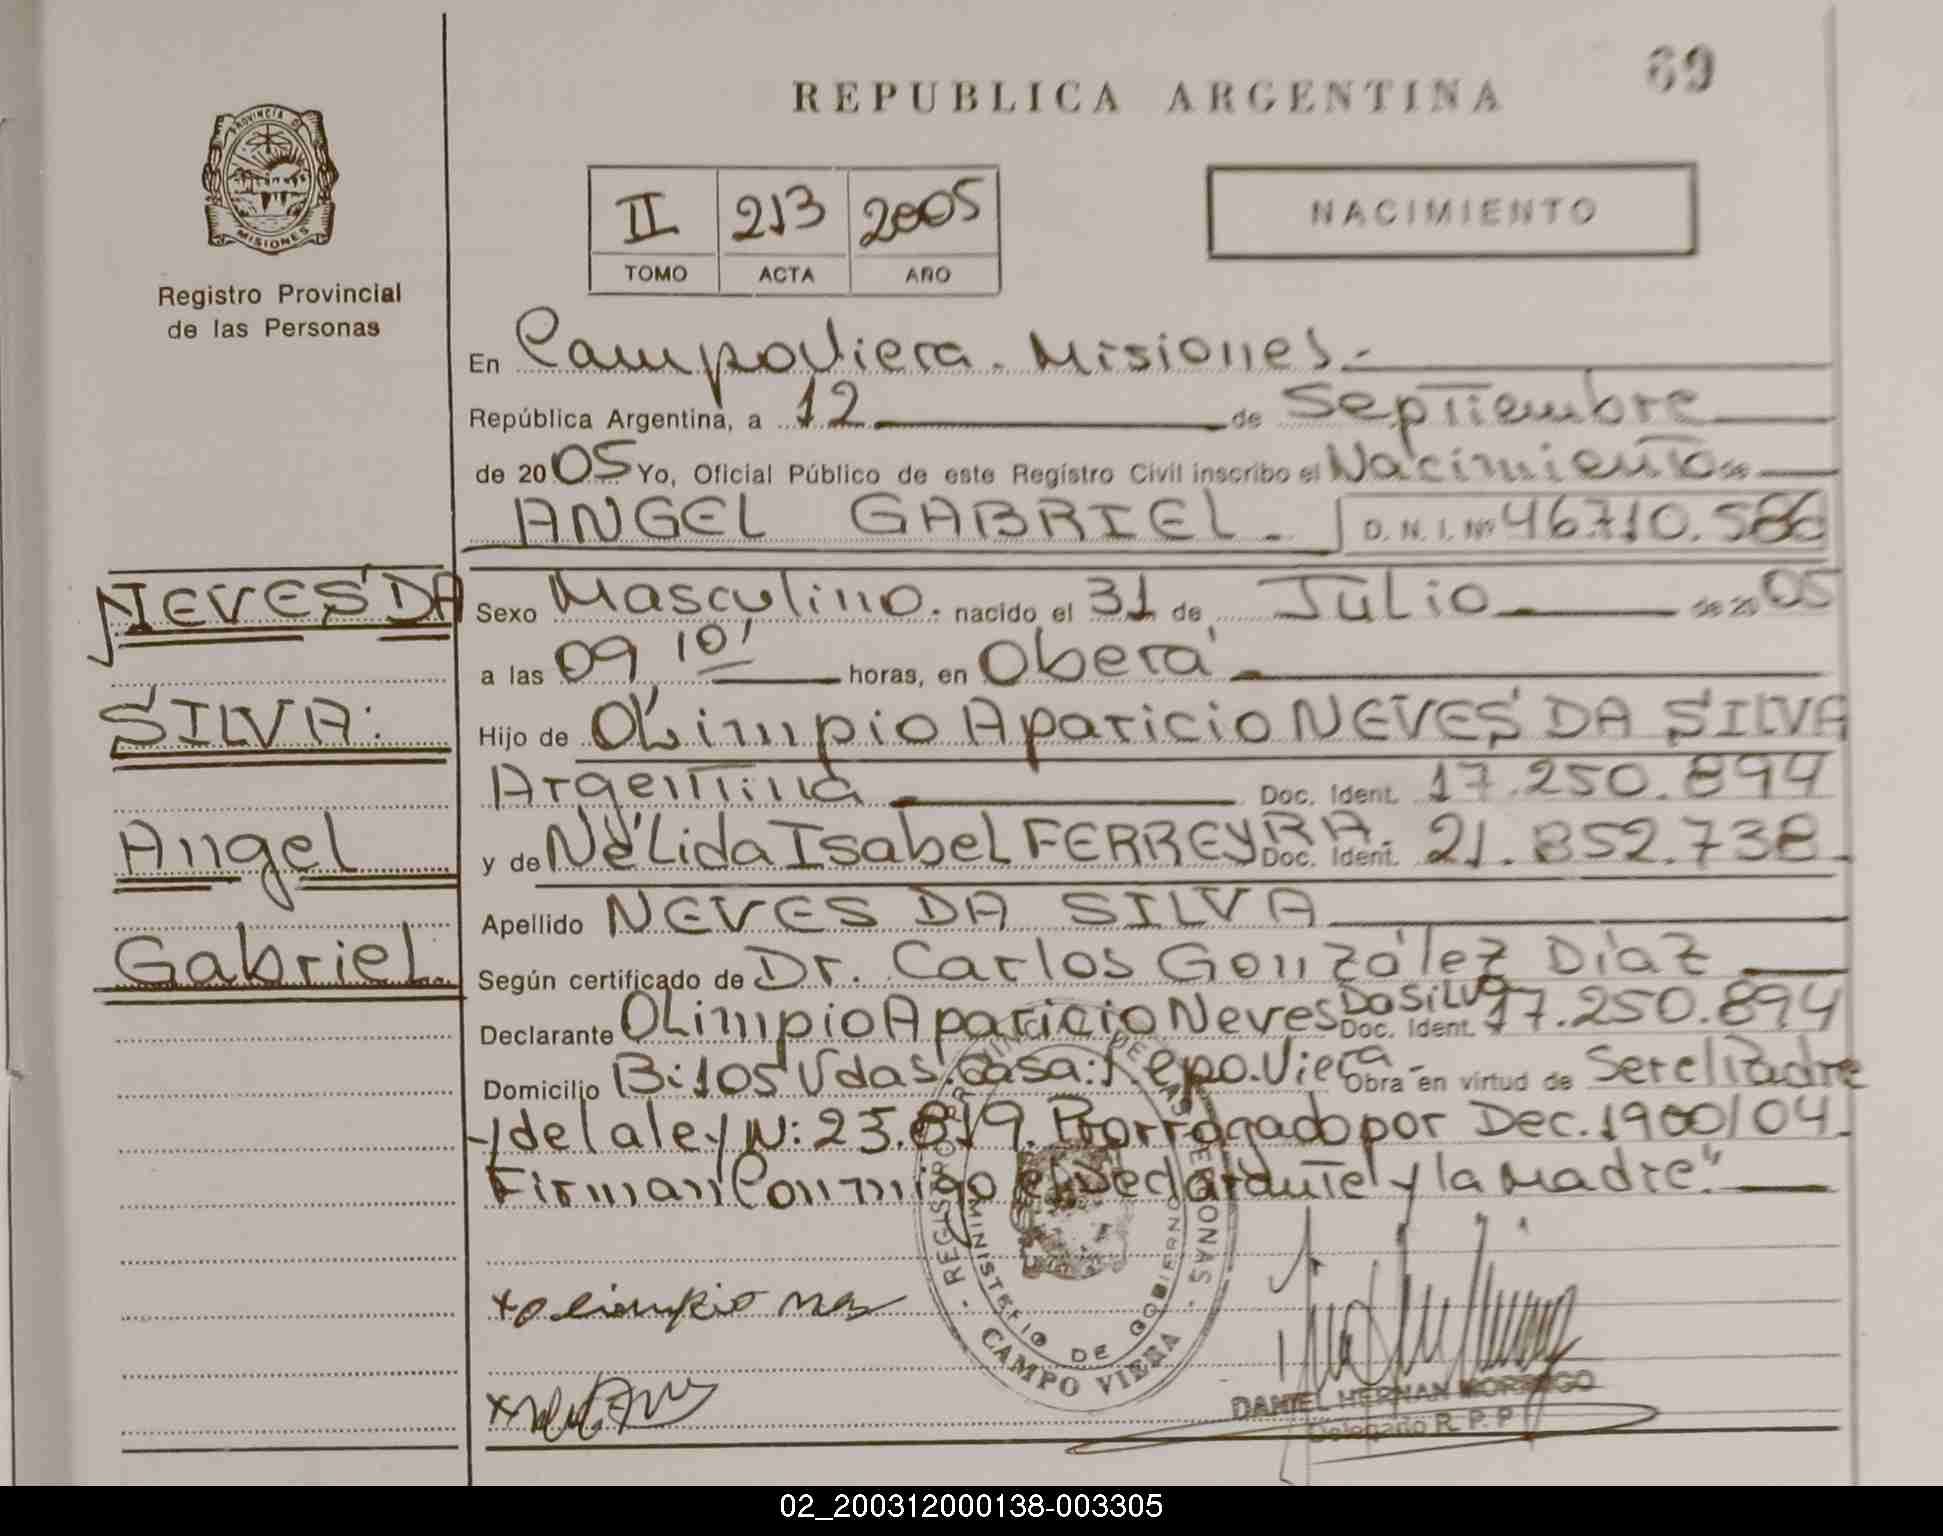 69
REPUBLICA ARGENTINA
PROVINCIA DE
MISIONES
Registro Provincial
de las Personas
II 213 2005
TOMO ACTA AÑO
NACIMIENTO
En Campo Viera. Misiones.-
República Argentina, a 12 de Septiembre
de 2005 Yo, Oficial Público de este Registro Civil inscribo el Nacimiento de
ANGEL GABRIEL.- D.N.I. Nº 46.710.586
NEVES DA
SILVA:
Angel
Gabriel.
Sexo Masculino. nacido el 31 de Julio de 2005
a las 09 10' horas, en Oberá
Hijo de OLimpio Aparicio NEVES DA SILVA
Argentina Doc. Ident. 17.250.894
y de NéLida Isabel FERREYRA. Doc. Ident. 21.852.738.
Apellido NEVES DA SILVA
Según certificado de Dr. Carlos González Díaz
Declarante OLimpio Aparicio Neves Da SiLva Doc. Ident. 17.250.894
Domicilio B: 105 Vdas. Casa: Viera- Obra en virtud de Ser el Padre
-y de la ley N: 25.819. Prorrogado por Dec. 1900/04.
Firman Conmigo el Declarante y la Madre".
REGISTRO PROVINCIAL DE LAS PERSONAS
MINISTERIO DE GOBIERNO
CAMPO VIERA
DANIEL HERNAN
Delegado R. P. P.
02_200312000138-003305